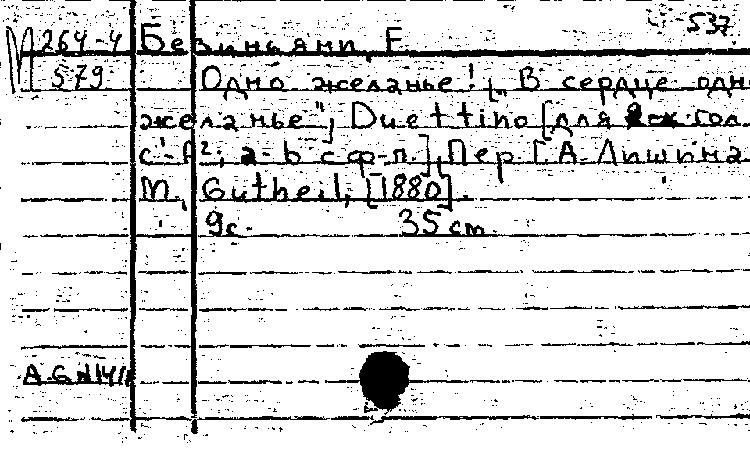 537
М 264-4 Безиньяни, F.
579 Одно желанье! [„В сердце одно
желанье"], Duettino [для 2-х гол.
c¹-f²; a-b с ф-п.], Пер. [А. Лишина
М., Gutheil, [1880].
9с. 35 cm.